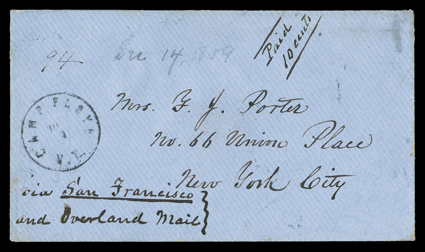 94
Dec 14, 1859
Paid
10 cents
Mrs. F. J. Porter
No. 66 Union Place
New York City
CAMP FLOYD
U.T.
via San Francisco
and Overland Mail